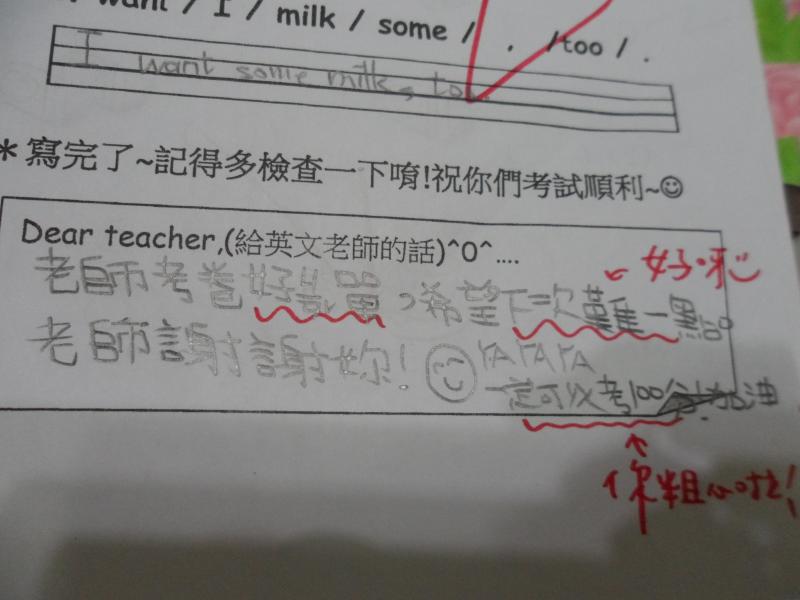 want / I / milk / some / , /too / .
I want some milk, too.
*寫完了~記得多檢查一下唷!祝你們考試順利~☺
Dear teacher,(給英文老師的話)^0^....
好呀
老師考卷好簡單,希望下次難一點
老師謝謝妳!☺YAYAYA
一定可以考100分!加油
你粗心啦!